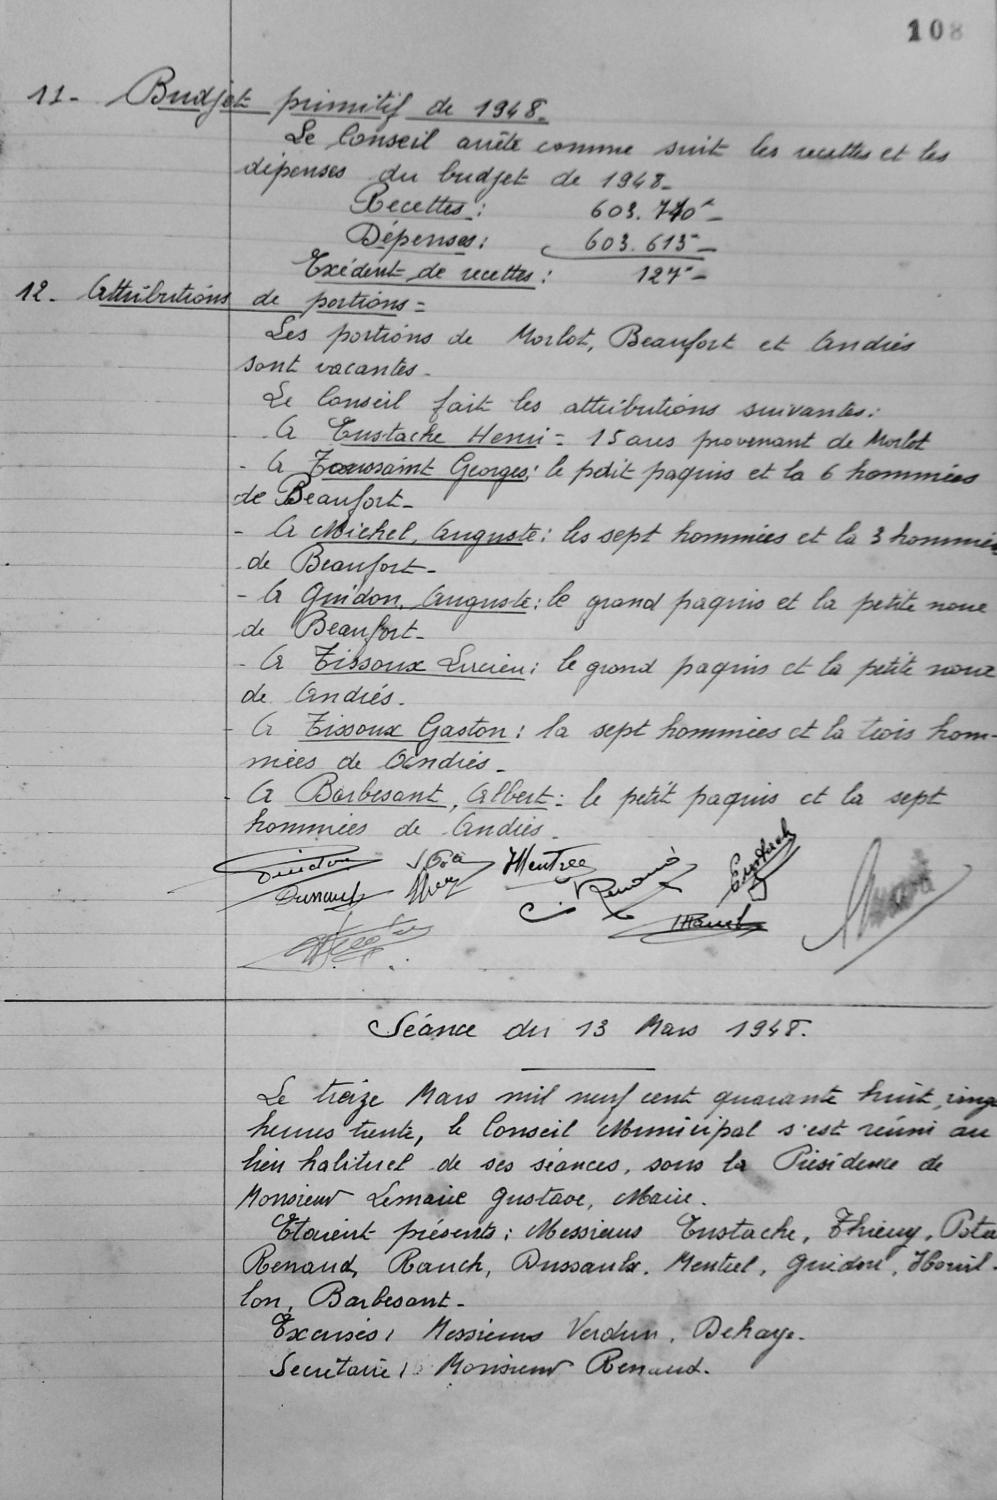 108
11- Budjet primitif de 1948.
Le Conseil arrête comme suit les recettes et les
dépenses du budjet de 1948-
Recettes: 603.740-
Dépenses: 603.613-
Exédent de recettes: 127-
12- Attributions de portions=
Les portions de Morlot, Beaufort et Andriés
sont vacantes-
Le Conseil fait les attributions suivantes:
- A Eustache Henri= 15 ares provenant de Morlot
- A Toussaint Georges: le petit paquis et la 6 hommées
de Beaufort-
- A Michel, Auguste: les sept hommées et la 3 hommées
de Beaufort-
- A Guidon, Auguste: le grand paquis et la petite noue
de Beaufort-
- A Tissoux Lucien: le grand paquis et la petite noue
de Andriés.
- A Tissoux Gaston: la sept hommées et la trois hom-
mées de Andriés-
- A Barbesant, Albert: le petit paquis et la sept
hommées de Andriés-
Guidon Mentrel Renaud Eustach
Dussaulx Rauch
Séance du 13 Mars 1948.
Le treize Mars mil neuf cent quarante huit, vingt
heures trente, le Conseil Municipal s'est réuni au
lieu habituel de ses séances, sous la Présidence de
Monsieur Lemaire Gustave, Maire.
Etaient présents: Messieurs Eustache, Thierry,
Renaud, Rauch, Dussaulx, Mentrel, Guidon, Houil-
lon, Barbesant-
Excusés: Messieurs Verdun, Dehaye-
Secrétaire: Monsieur Renaud.